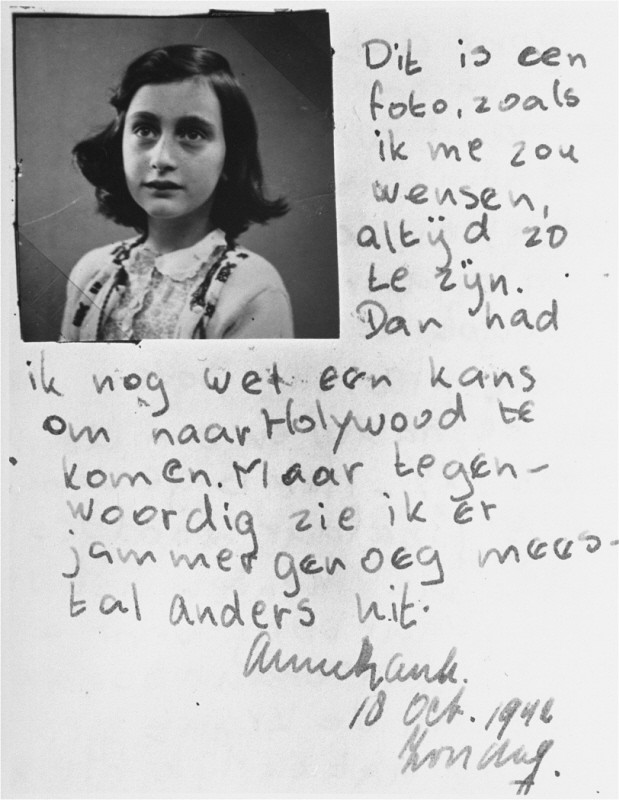 Dit is een
foto, zoals
ik me zou
wensen,
altijd zo
te zijn.
Dan had
ik nog wel een kans
om naar Holywood te
komen. Maar tegen-
woordig zie ik er
jammer genoeg mees-
tal anders uit.
Anne Frank.
18 Oct. 1942
Zondag.